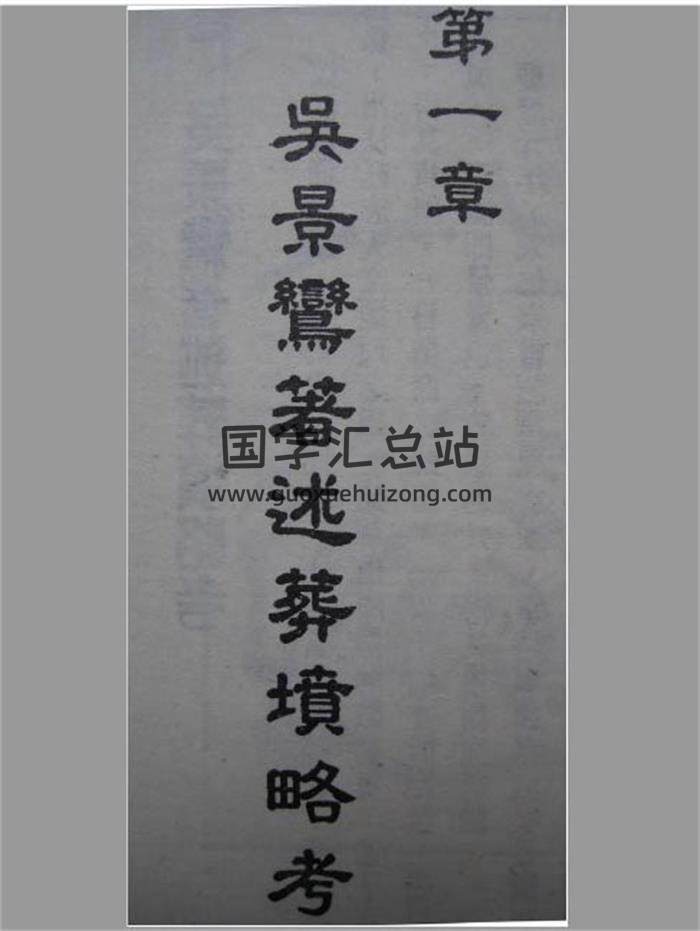 第一章
吳景鸞著述葬墳略考
国学汇总站
www.guoxuehuizong.com